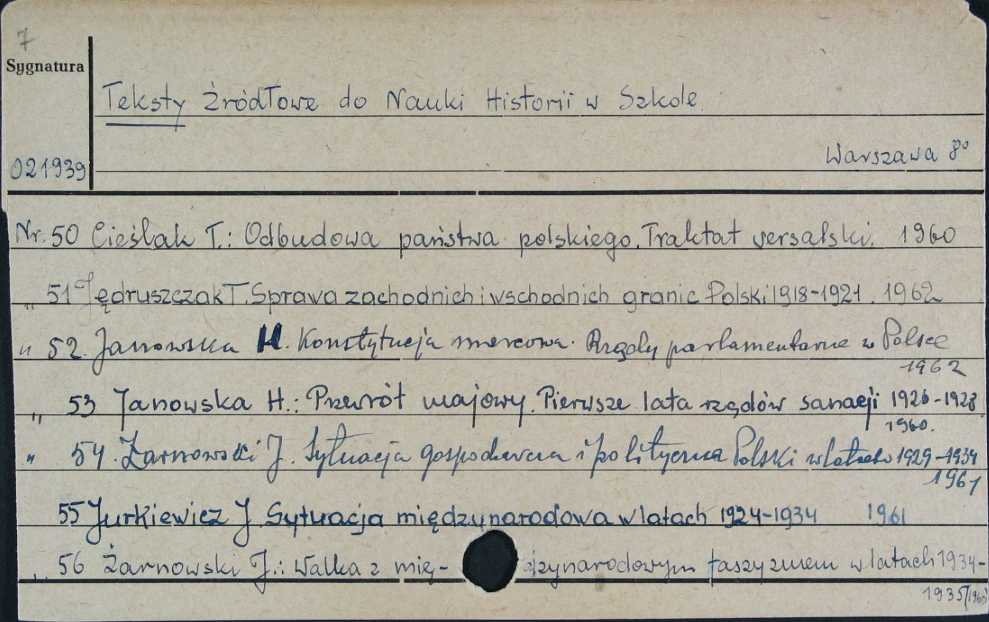 7
Sygnatura
Teksty źródłowe do Nauki Historii w Szkole.
021939
Warszawa 8º
Nr. 50 Cieślak T.: Odbudowa państwa polskiego. Traktat versalski. 1960
„ 51 Jędruszczak T. Sprawa zachodnich i wschodnich granic Polski 1918-1921. 1962
„ 52. Janowska H. Konstytucja marcowa. Rządy parlamentarne w Polsce
1962
„ 53 Janowska H.: Przewrót majowy. Pierwsze lata rządów sanacji 1926-1928
1960.
„ 54. Żarnowski J. Sytuacja gospodarcza i polityczna Polski w latach 1929-1934
1961
55 Jurkiewicz J. Sytuacja międzynarodowa w latach 1924-1934 1961
„ 56 Żarnowski J.: Walka z mię- dzynarodowym faszyzmem w latach 1934-
1935